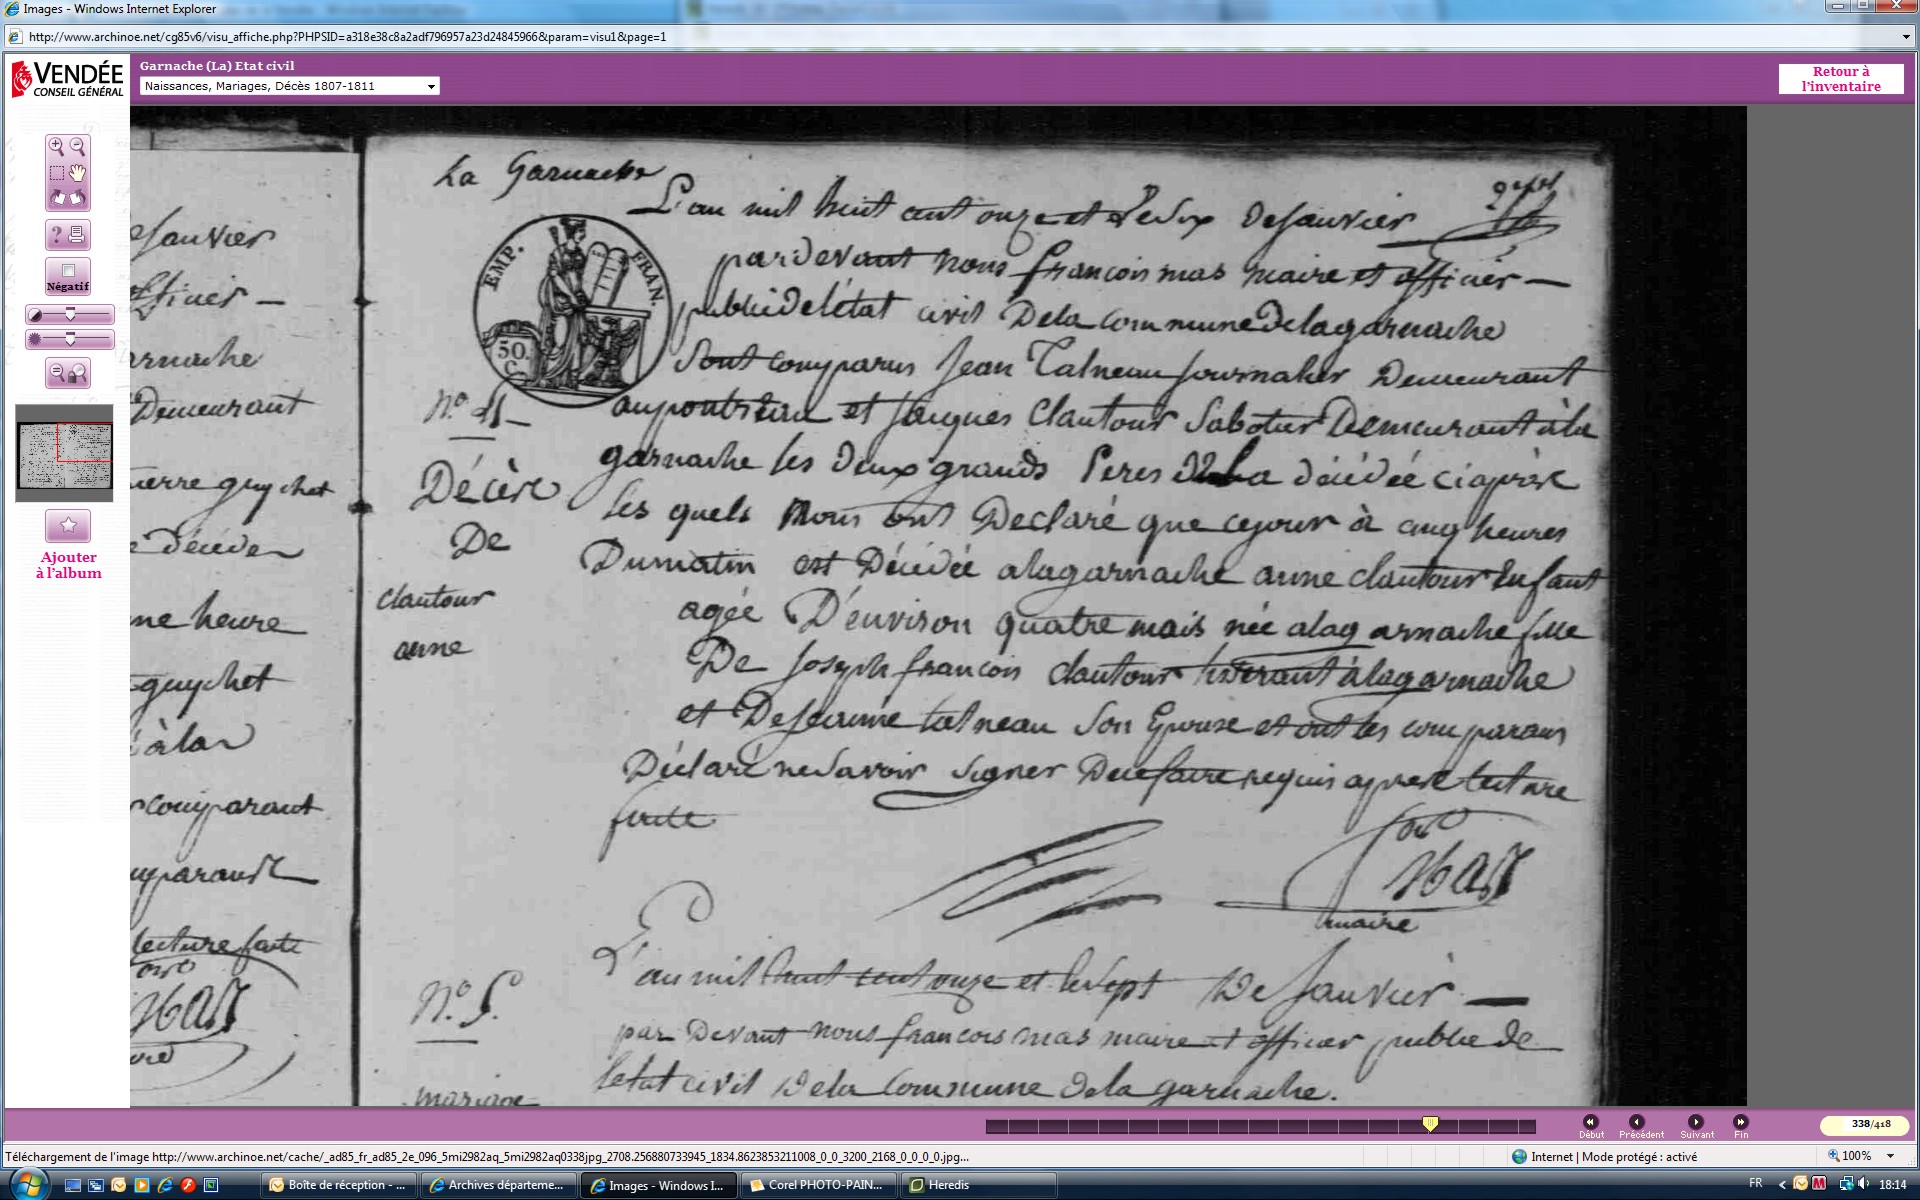 Images - Windows Internet Explorer
http://www.archinoe.net/cg85v6/visu_affiche.php?PHPSID=a318e38c8a2adf796957a23d24845966&param=visu1&page=1
VENDÉE
CONSEIL GÉNÉRAL
Garnache (La) Etat civil
Naissances, Mariages, Décès 1807-1811
Retour à
l'inventaire
Négatif
Ajouter
à l'album
De Janvier
officier
garnache
Demeurant
pierre guychet
décédé
une heure
guychet
à la
comparant
comparant
lecture faite
MAS
La Garnache
EMP. FRAN.
50.
C.
L'an mil huit cent onze et le six De Janvier
pardevant nous françois mas maire et officier
public de l'état civil De la commune De lagarnache
Sont comparus Jean Talneau Journalier Demeurant
et Jacques Clautour Sabotier Demeurant à la
garnache les deux grands Peres De La décédée ci après
Les quels Nous ont Declaré que ce jour à cinq heures
Du matin est Décédée a lagarnache anne clautour Enfant
agée D'environ quatre mois née a lagarnache fille
De Joseph françois Clautour à lagarnache
et De Jeanne talneau Son Epouse et ont les comparans
Déclaré ne Savoir Signer De ce faire requis après lecture
faite
MAS
maire
Nº 4
Décès
De
clautour
anne
Nº 5.
mariage
L'an mil huit cent onze et le sept De Janvier
par Devant nous françois mas maire et officier public de
l'etat civil De la Commune De la garnache.
Début
Précédent
Suivant
Fin
338/418
Téléchargement de l'image http://www.archinoe.net/cache/_ad85_fr_ad85_2e_096_5mi2982aq_5mi2982aq0338jpg_2708.256880733945_1834.8623853211008_0_0_3200_2168_0_0_0_0.jpg...
Internet | Mode protégé : activé
100%
Boîte de réception - ...
Archives départeme...
Images - Windows I...
Corel PHOTO-PAIN...
Heredis
FR
18:14